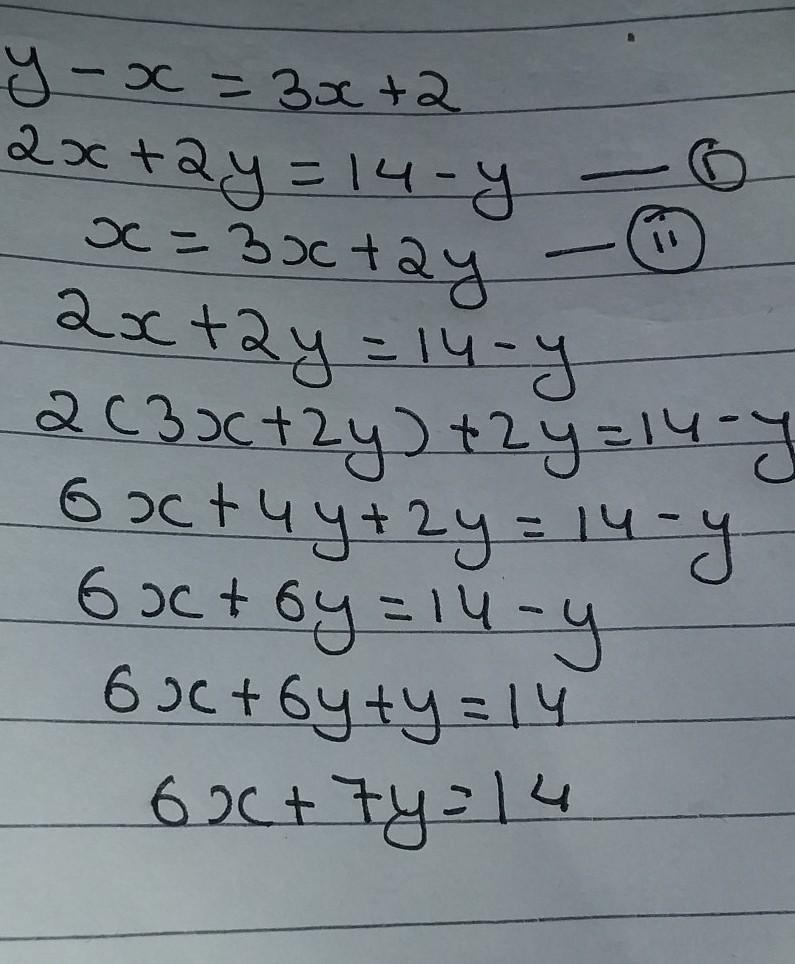 y - x = 3x + 2
2x + 2y = 14 - y — (i)
x = 3x + 2y — (ii)
2x + 2y = 14 - y
2(3x + 2y) + 2y = 14 - y
6x + 4y + 2y = 14 - y
6x + 6y = 14 - y
6x + 6y + y = 14
6x + 7y = 14